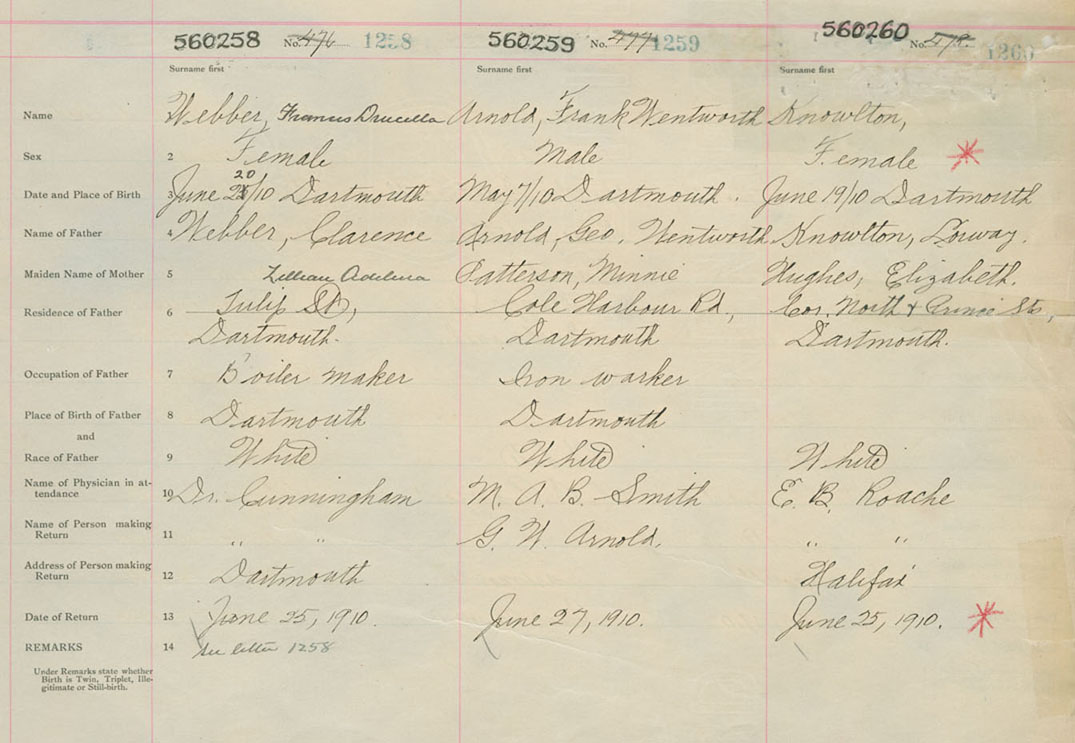 560258 No. 476 1258 560259 No. 477 1259 560260 No. 478 1260
Surname first Surname first Surname first
Name Webber, Francis Drucella Arnold, Frank Wentworth Knowlton,
Sex 2 Female Male Female
20
Date and Place of Birth 3 June /10 Dartmouth May 7/10 Dartmouth. June 19/10 Dartmouth
Name of Father 4 Webber, Clarence Arnold, Geo. Wentworth Knowlton, Lorway.
Maiden Name of Mother 5 Lillian Adelina Patterson, Minnie Hughes, Elizabeth.
Residence of Father 6 Tulip St, Cole Harbour Rd, Cor. North + Prince Sts,
Dartmouth. Dartmouth Dartmouth.
Occupation of Father 7 Boiler maker Iron worker
Place of Birth of Father 8 Dartmouth Dartmouth
and
Race of Father 9 White White White
Name of Physician in at-
tendance 10 Dr. Cunningham M. A. B. Smith E. B. Roache
Name of Person making
Return 11 " " G. W. Arnold. " "
Address of Person making
Return 12 Dartmouth Halifax
Date of Return 13 June 25, 1910. June 27, 1910. June 25, 1910.
REMARKS 14 see letter 1258
Under Remarks state whether
Birth is Twin, Triplet, Ille-
gitimate or Still-birth.